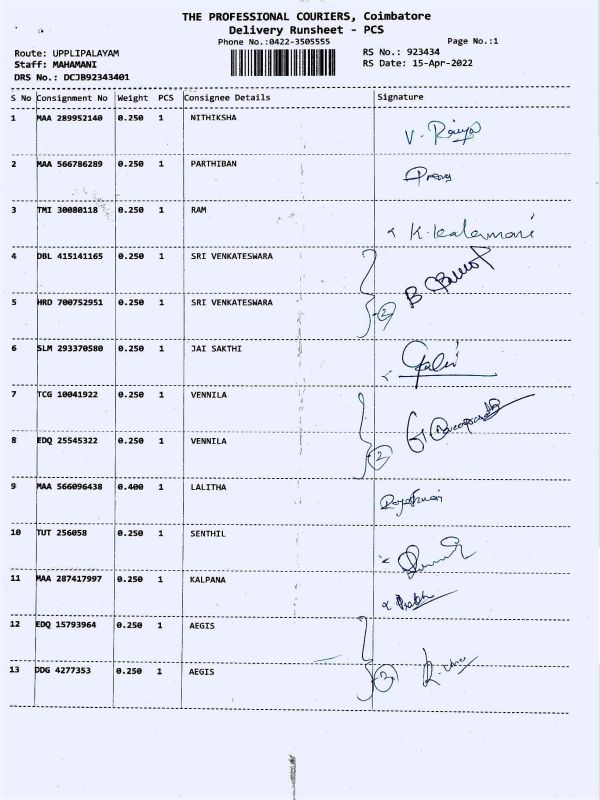 THE PROFESSIONAL COURIERS, Coimbatore
Delivery Runsheet - PCS
Phone No.:0422-3505555 Page No.:1
Route: UPPLIPALAYAM RS No.: 923434
Staff: MAHAMANI RS Date: 15-Apr-2022
DRS No.: DCJB92343401
S No Consignment No Weight PCS Consignee Details Signature
1 MAA 289952140 0.250 1 NITHIKSHA
2 MAA 566786289 0.250 1 PARTHIBAN
3 TMI 30080118 0.250 1 RAM K. Kalamani
4 DBL 415141165 0.250 1 SRI VENKATESWARA
5 HRD 700752951 0.250 1 SRI VENKATESWARA 2
6 SLM 293370580 0.250 1 JAI SAKTHI
7 TCG 10041922 0.250 1 VENNILA
8 EDQ 25545322 0.250 1 VENNILA 2
9 MAA 566096438 0.400 1 LALITHA
10 TUT 256058 0.250 1 SENTHIL
11 MAA 287417997 0.250 1 KALPANA
12 EDQ 15793964 0.250 1 AEGIS
13 DDG 4277353 0.250 1 AEGIS